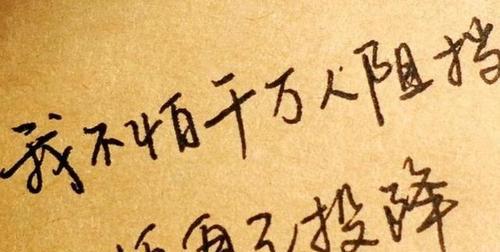 我不怕千万人阻挡
投降